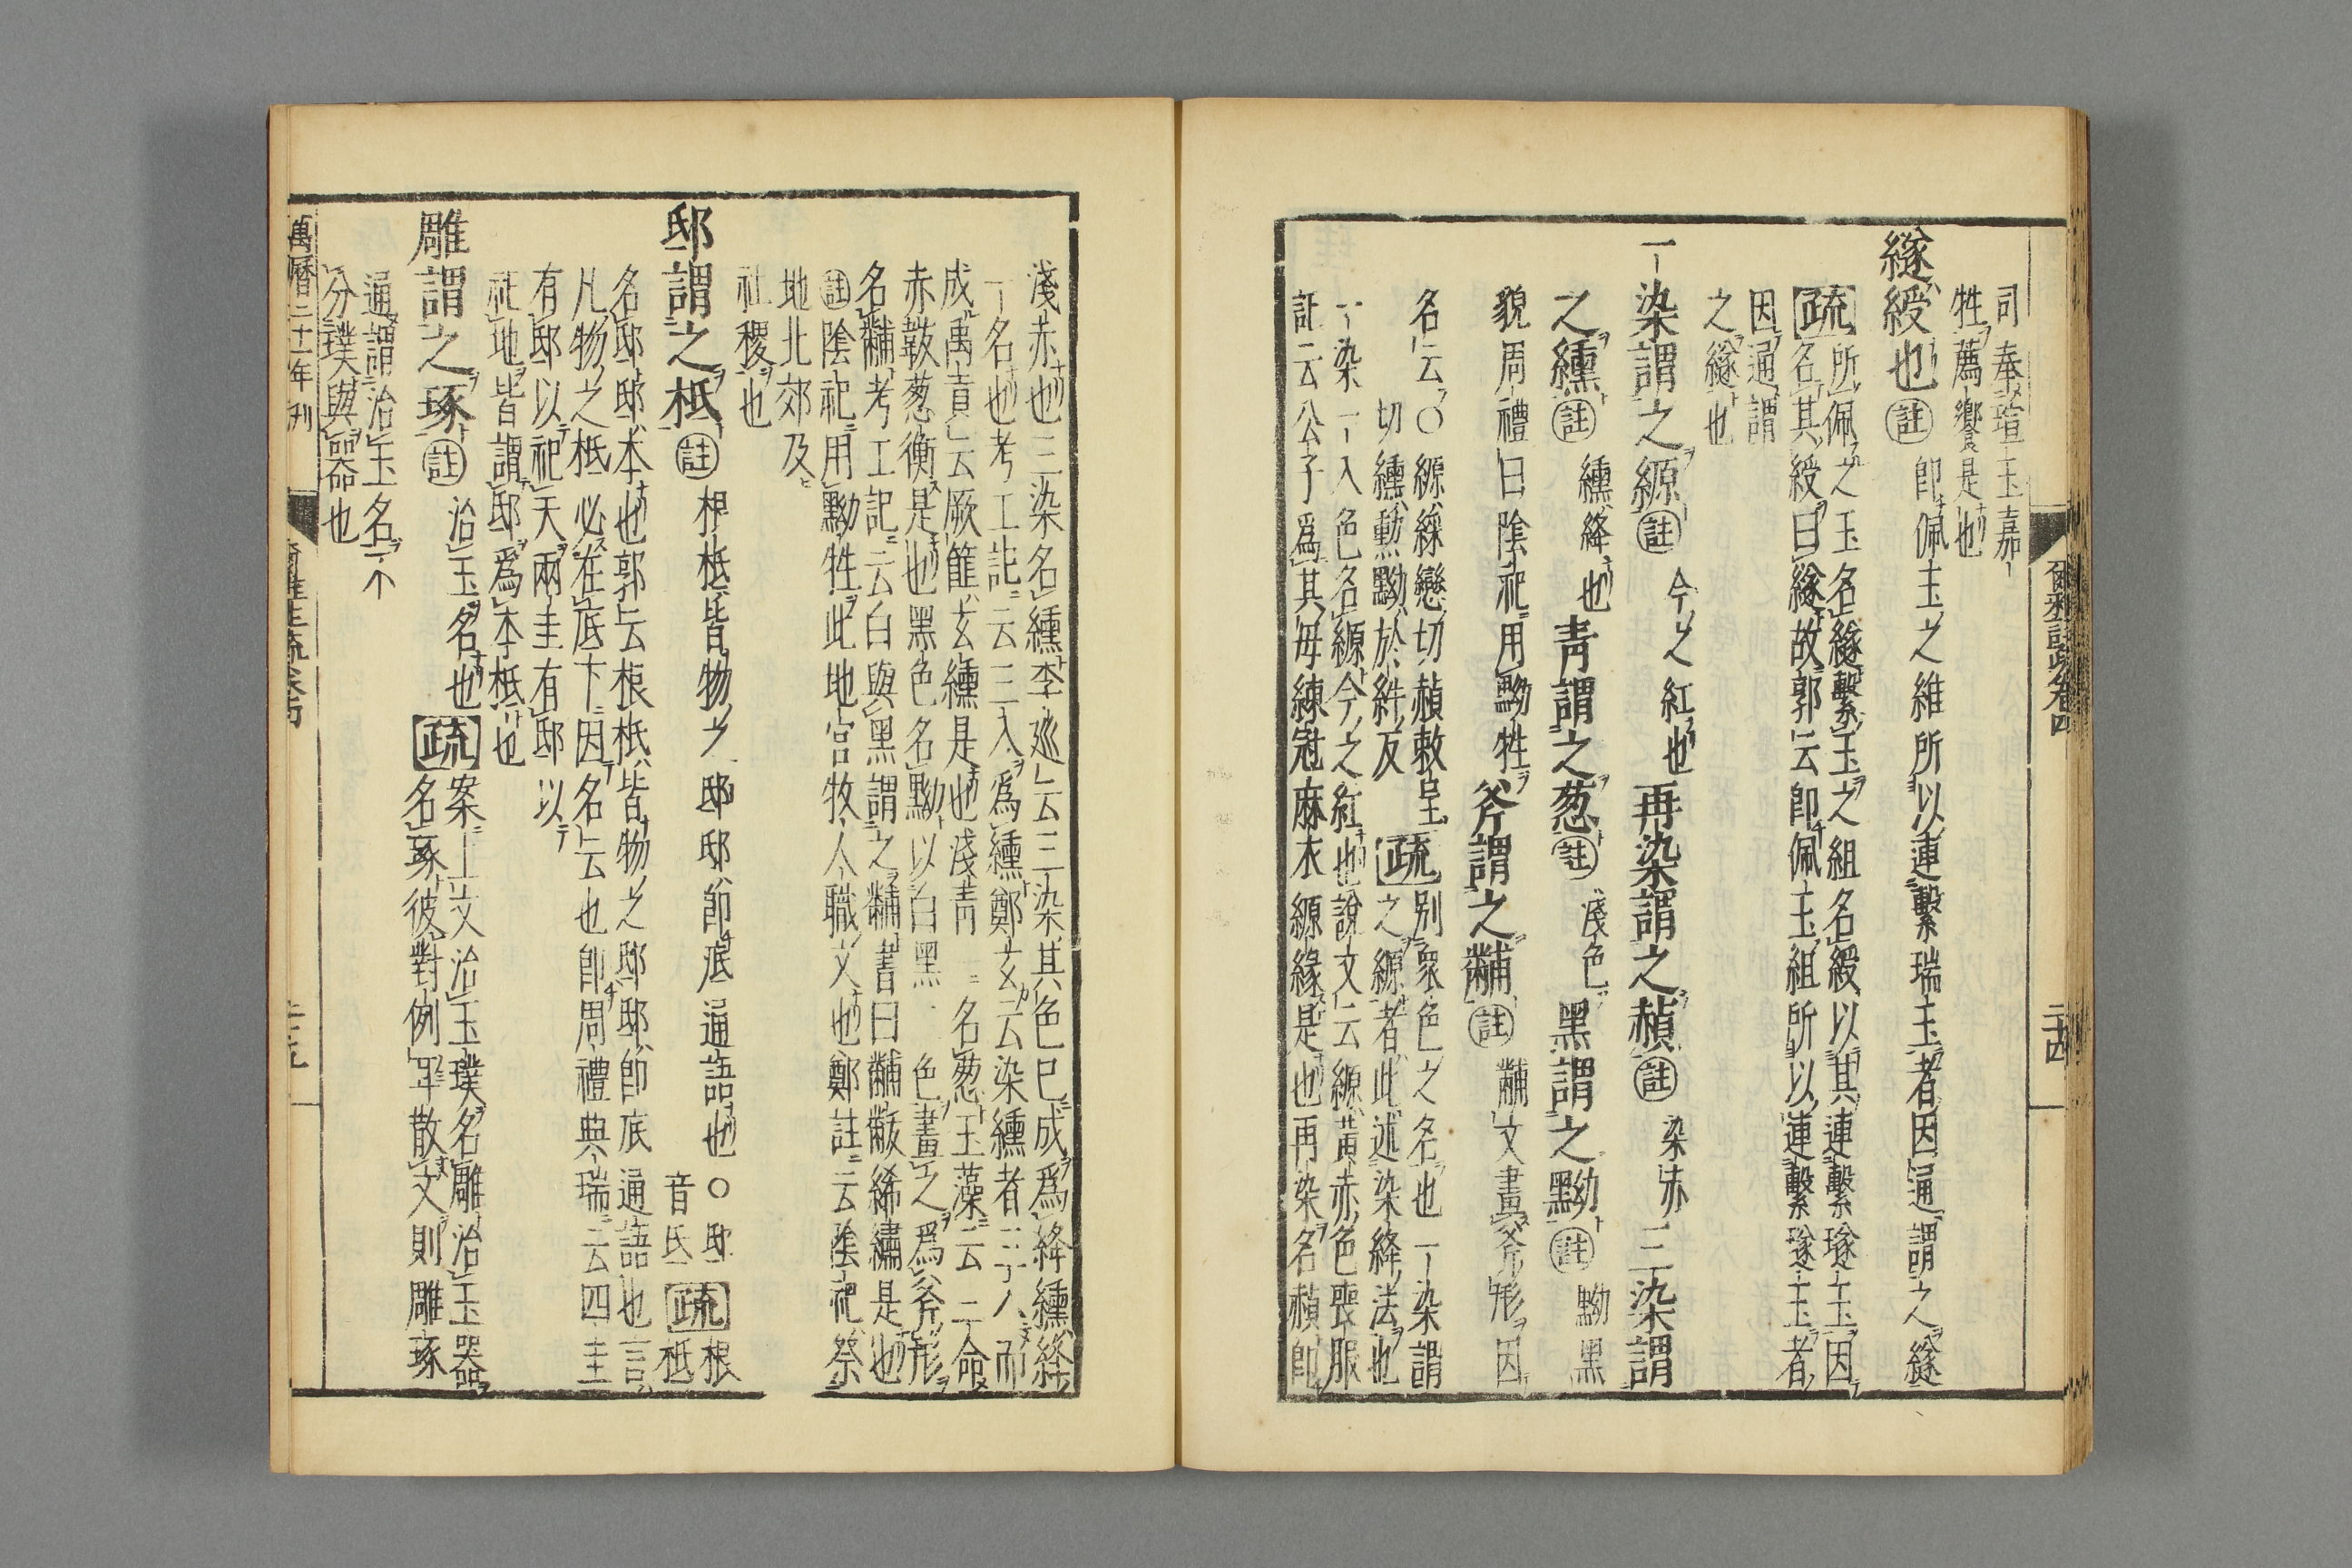 爾雅註疏卷四
二十四
司奉瑄玉嘉
牲薦饗是也
繸綬也 註 即佩玉之維所以連繫瑞玉者因通謂之繸
疏 所佩之玉名繸繫玉之組名綬以其連繫璲玉因
名其綬曰繸故郭云即佩玉組所以連繫璲玉者
因通謂
之繸也
一染謂之縓 註 今之紅也 再染謂之赬 註 染赤 三染謂
之纁 註 纁絳也 青謂之葱 註 淺色 黑謂之黝 註 黝黑
貌周禮曰陰祀用黝牲 斧謂之黼 註 黼文畫斧形因
名云〇縓縓戀切赬敕呈
切纁勳黝於糾反
疏 別衆色之名也一染謂
之縓者此述染絳法也
一染一入色名縓今之紅也說文云縓黃赤色喪服
記云公子爲其母練冠麻衣縓緣是也再染名赬即
淺赤也三染名纁李巡云三染其色已成爲絳纁絳
一名也考工記云三入爲纁鄭玄云染纁者三入而
成禹貢云厥篚玄纁是也淺青一名葱玉藻云三命
赤韍葱衡是也黑色名黝以白黑二色畫之爲斧形
名黼考工記云白與黑謂之黼書曰黼黻絺繡是也
註 陰祀用黝牲此地官牧人職文也鄭註云陰祀祭
地北郊及
社稷也
邸謂之柢 註 根柢皆物之邸邸即底通語也〇邸
音氐 疏 根
柢
名邸邸本也郭云根柢皆物之邸邸即底通語也言
凡物之柢必在底下因名云也即周禮典瑞云四圭
有邸以祀天兩圭有邸以
祀地皆謂邸爲本柢也
雕謂之琢 註 治玉名也 疏 案上文治玉璞名雕治玉器
名琢彼對例耳散文則雕琢
通謂治玉名不
分璞與器也
萬曆二十一年刊
爾雅註疏卷四